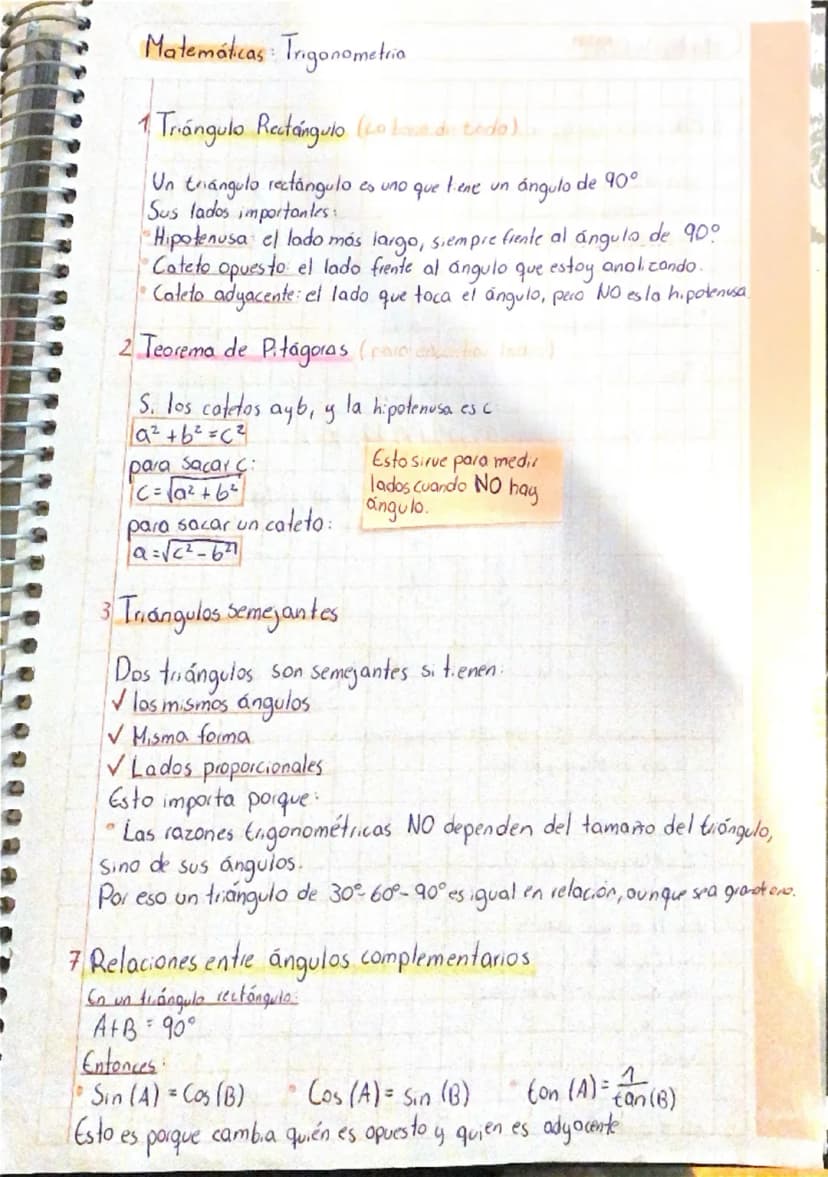 Matemáticas: Trigonometria
1 Triángulo Rectángulo (La base de todo)
Un triángulo rectángulo es uno que tiene un ángulo de 90°
Sus lados importantes:
• Hipotenusa: el lado más largo, siempre frente al ángulo de 90°.
• Cateto opuesto: el lado frente al ángulo que estoy analizando.
• Cateto adyacente: el lado que toca el ángulo, pero NO es la hipotenusa
2 Teorema de Pitágoras (para encontrar
Si los catetos a y b, y la hipotenusa es c
a² + b² = c²
para sacar c:
c = √a² + b²
para sacar un cateto:
a = √c² - b²
Esto sirve para medir
lados cuando NO hay
ángulo.
3 Triángulos semejantes
Dos triángulos son semejantes si tienen:
✓ los mismos ángulos
✓ Misma forma
✓ Lados proporcionales
Esto importa porque:
• Las razones trigonométricas NO dependen del tamaño del triángulo,
sino de sus ángulos.
Por eso un triángulo de 30°-60°-90° es igual en relación, aunque sea
7 Relaciones entre ángulos complementarios
En un triángulo rectángulo:
A+B = 90°
Entonces:
• Sin (A) = Cos (B) • Cos (A) = Sin (B) • tan (A) = 1/tan(B)
Esto es porque cambia quién es opuesto y quien es adyacente